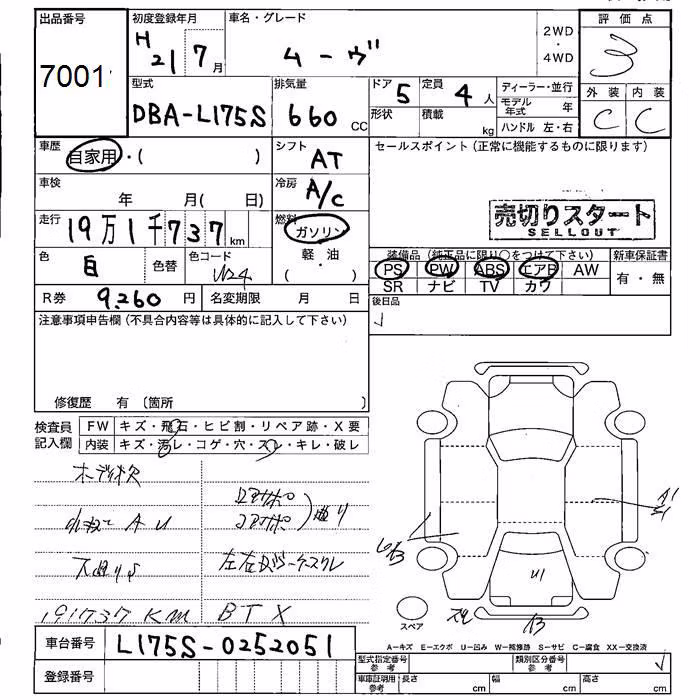 出品番号
7001
初度登録年月
H 21 7月
車名・グレード
ムーヴ
2WD
・
4WD
評価点
3
外装 内装
C C
型式
DBA-L175S
排気量
660 CC
ドア 5
形状
定員 4人
積載 kg
ディーラー・並行
モデル年式 年
ハンドル 左・右
車歴
自家用・( )
シフト
AT
セールスポイント(正常に機能するものに限ります)
車検
年 月( 日)
冷房
A/C
売切りスタート
SELLOUT
走行
19万1千737km
燃料
ガソリン
軽・油
( )
色
白
色替
色コード
W24
装備品(純正品に限り○をつけて下さい)
PS PW ABS エアB AW
SR ナビ TV カワ
新車保証書
有・無
R券 9,260円
名変期限 月 日
後日品
注意事項申告欄(不具合内容等は具体的に記入して下さい)
修復歴 有〔箇所 〕
検査員
記入欄
FW キズ・飛石・ヒビ割・リペア跡・X要
内装 キズ・汚レ・コゲ・穴・スレ・キレ・破レ
AU
191737KM
BTX
A1
U1
スペア
A-キズ E-エクボ U-凹み W-補修跡 S-サビ C-腐食 XX-交換済
車台番号
L175S-0252051
登録番号
型式指定番号
参考
類別区分番号
参考
車庫証明用
参考
長さ cm 幅 cm 高さ cm